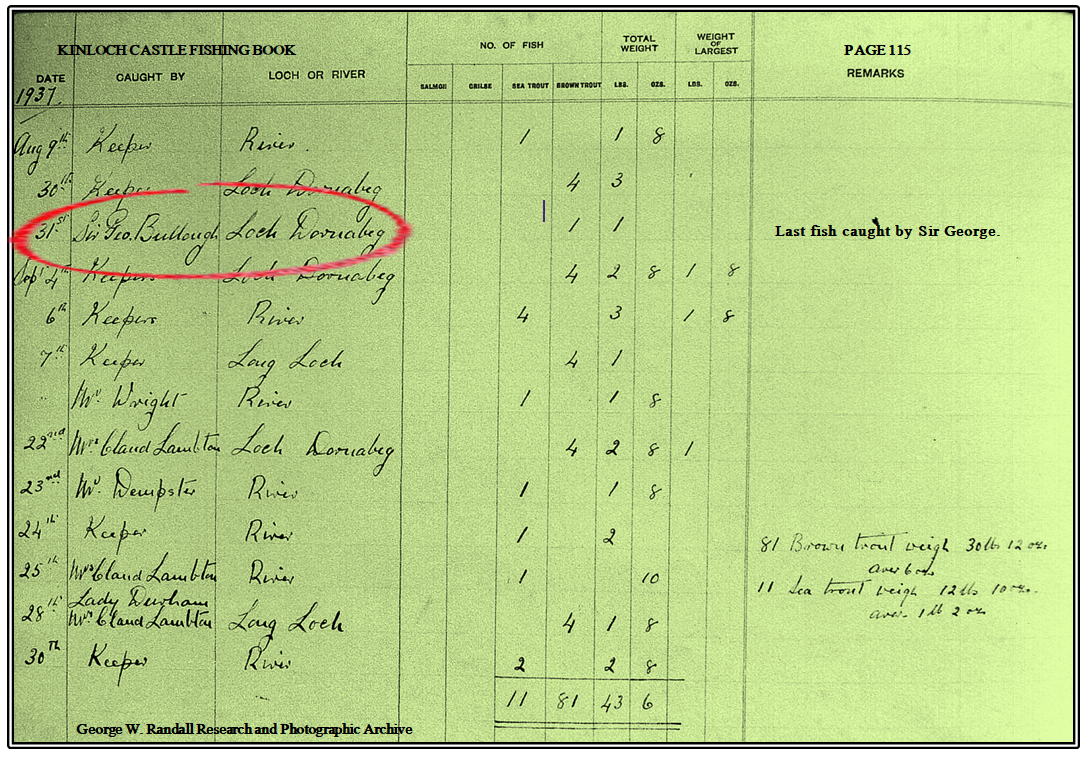 KINLOCH CASTLE FISHING BOOK PAGE 115
DATE CAUGHT BY LOCH OR RIVER NO. OF FISH TOTAL WEIGHT WEIGHT OF LARGEST REMARKS
SALMON GRILSE SEA TROUT BROWN TROUT LBS. OZS. LBS. OZS.
1937.
Aug 9th Keeper River. 1 1 8
30th Keeper Loch Dornabeg 4 3
31st Sir Geo. Bullough Loch Dornabeg 1 1 Last fish caught by Sir George.
Sep' 4th Keepers Loch Dornabeg 4 2 8 1 8
6th Keepers River 4 3 1 8
7th Keeper Long Loch 4 1
" Mr Wright River 1 1 8
22nd Mrs Claud Lambton Loch Dornabeg 4 2 8 1
23rd Mr. Dempster River 1 1 8
24th Keeper River 1 2
81 Brown trout weigh 30lbs 12 ozs.
aver 6 ozs
25th Mrs Claud Lambton River 1 10
11 Sea trout weigh 12lbs 10 ozs.
aver. 1 lb 2 ozs
Lady Durham
28th Mrs Claud Lambton Long Loch 4 1 8
30th Keeper River 2 2 8
11 81 43 6
George W. Randall Research and Photographic Archive